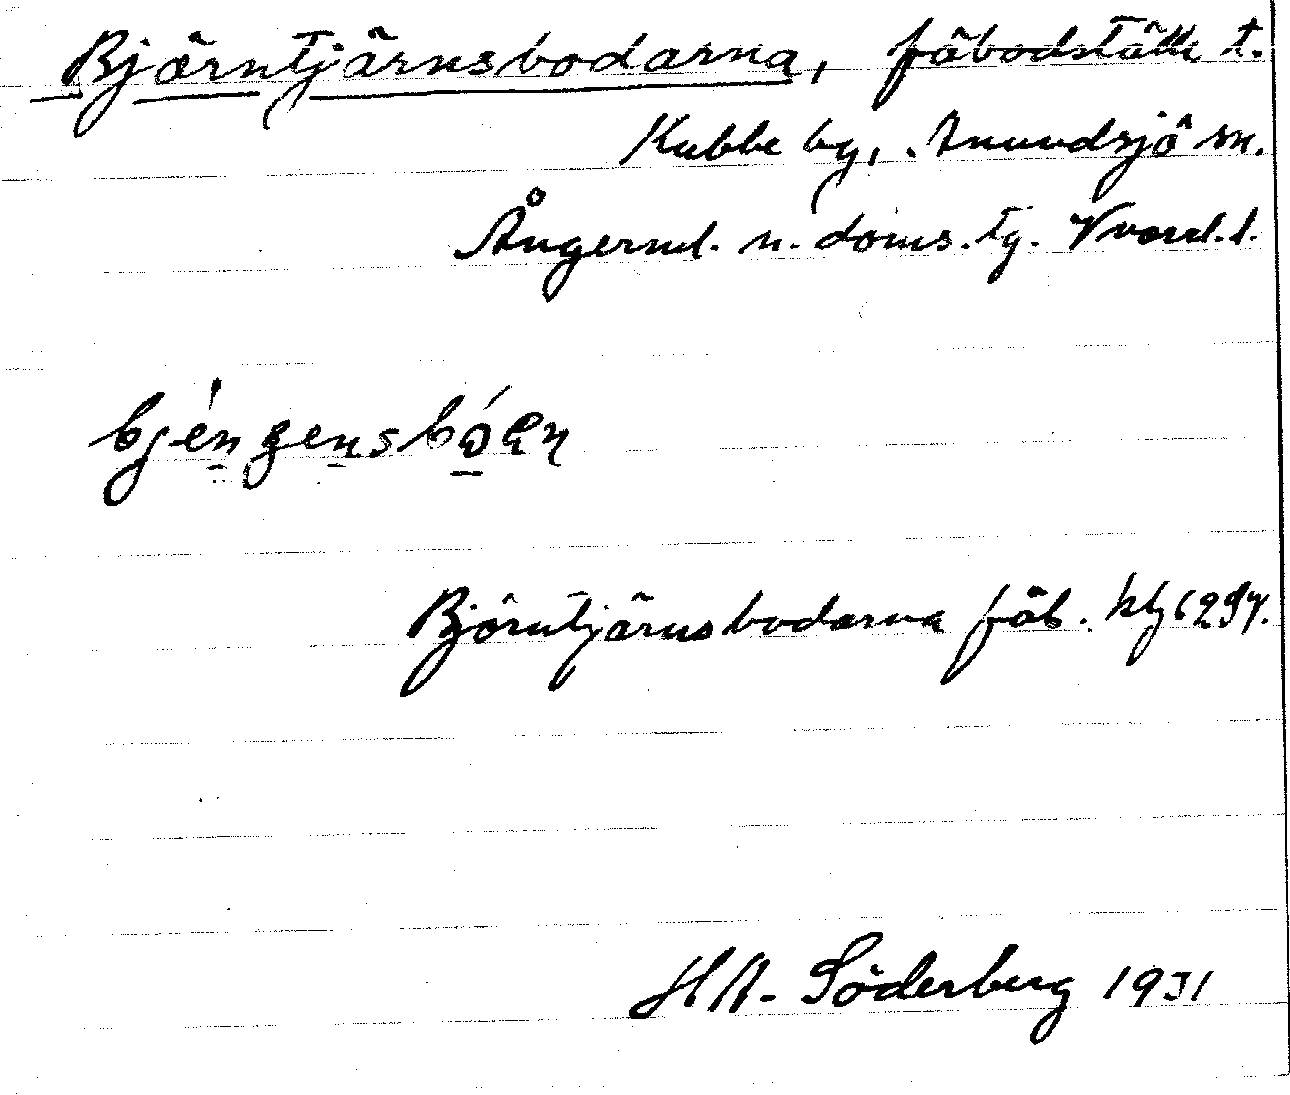 Björntjärnsbodarna, fäbodställe t.
Kubbe by, Anundsjö sn.
Ångerml. n. doms. tg. Vnorrl. l.
bjénʒensbóɑn
Björntjärnsbodarna fäb. ktbl 29 Sv.
H A. Söderberg 1931